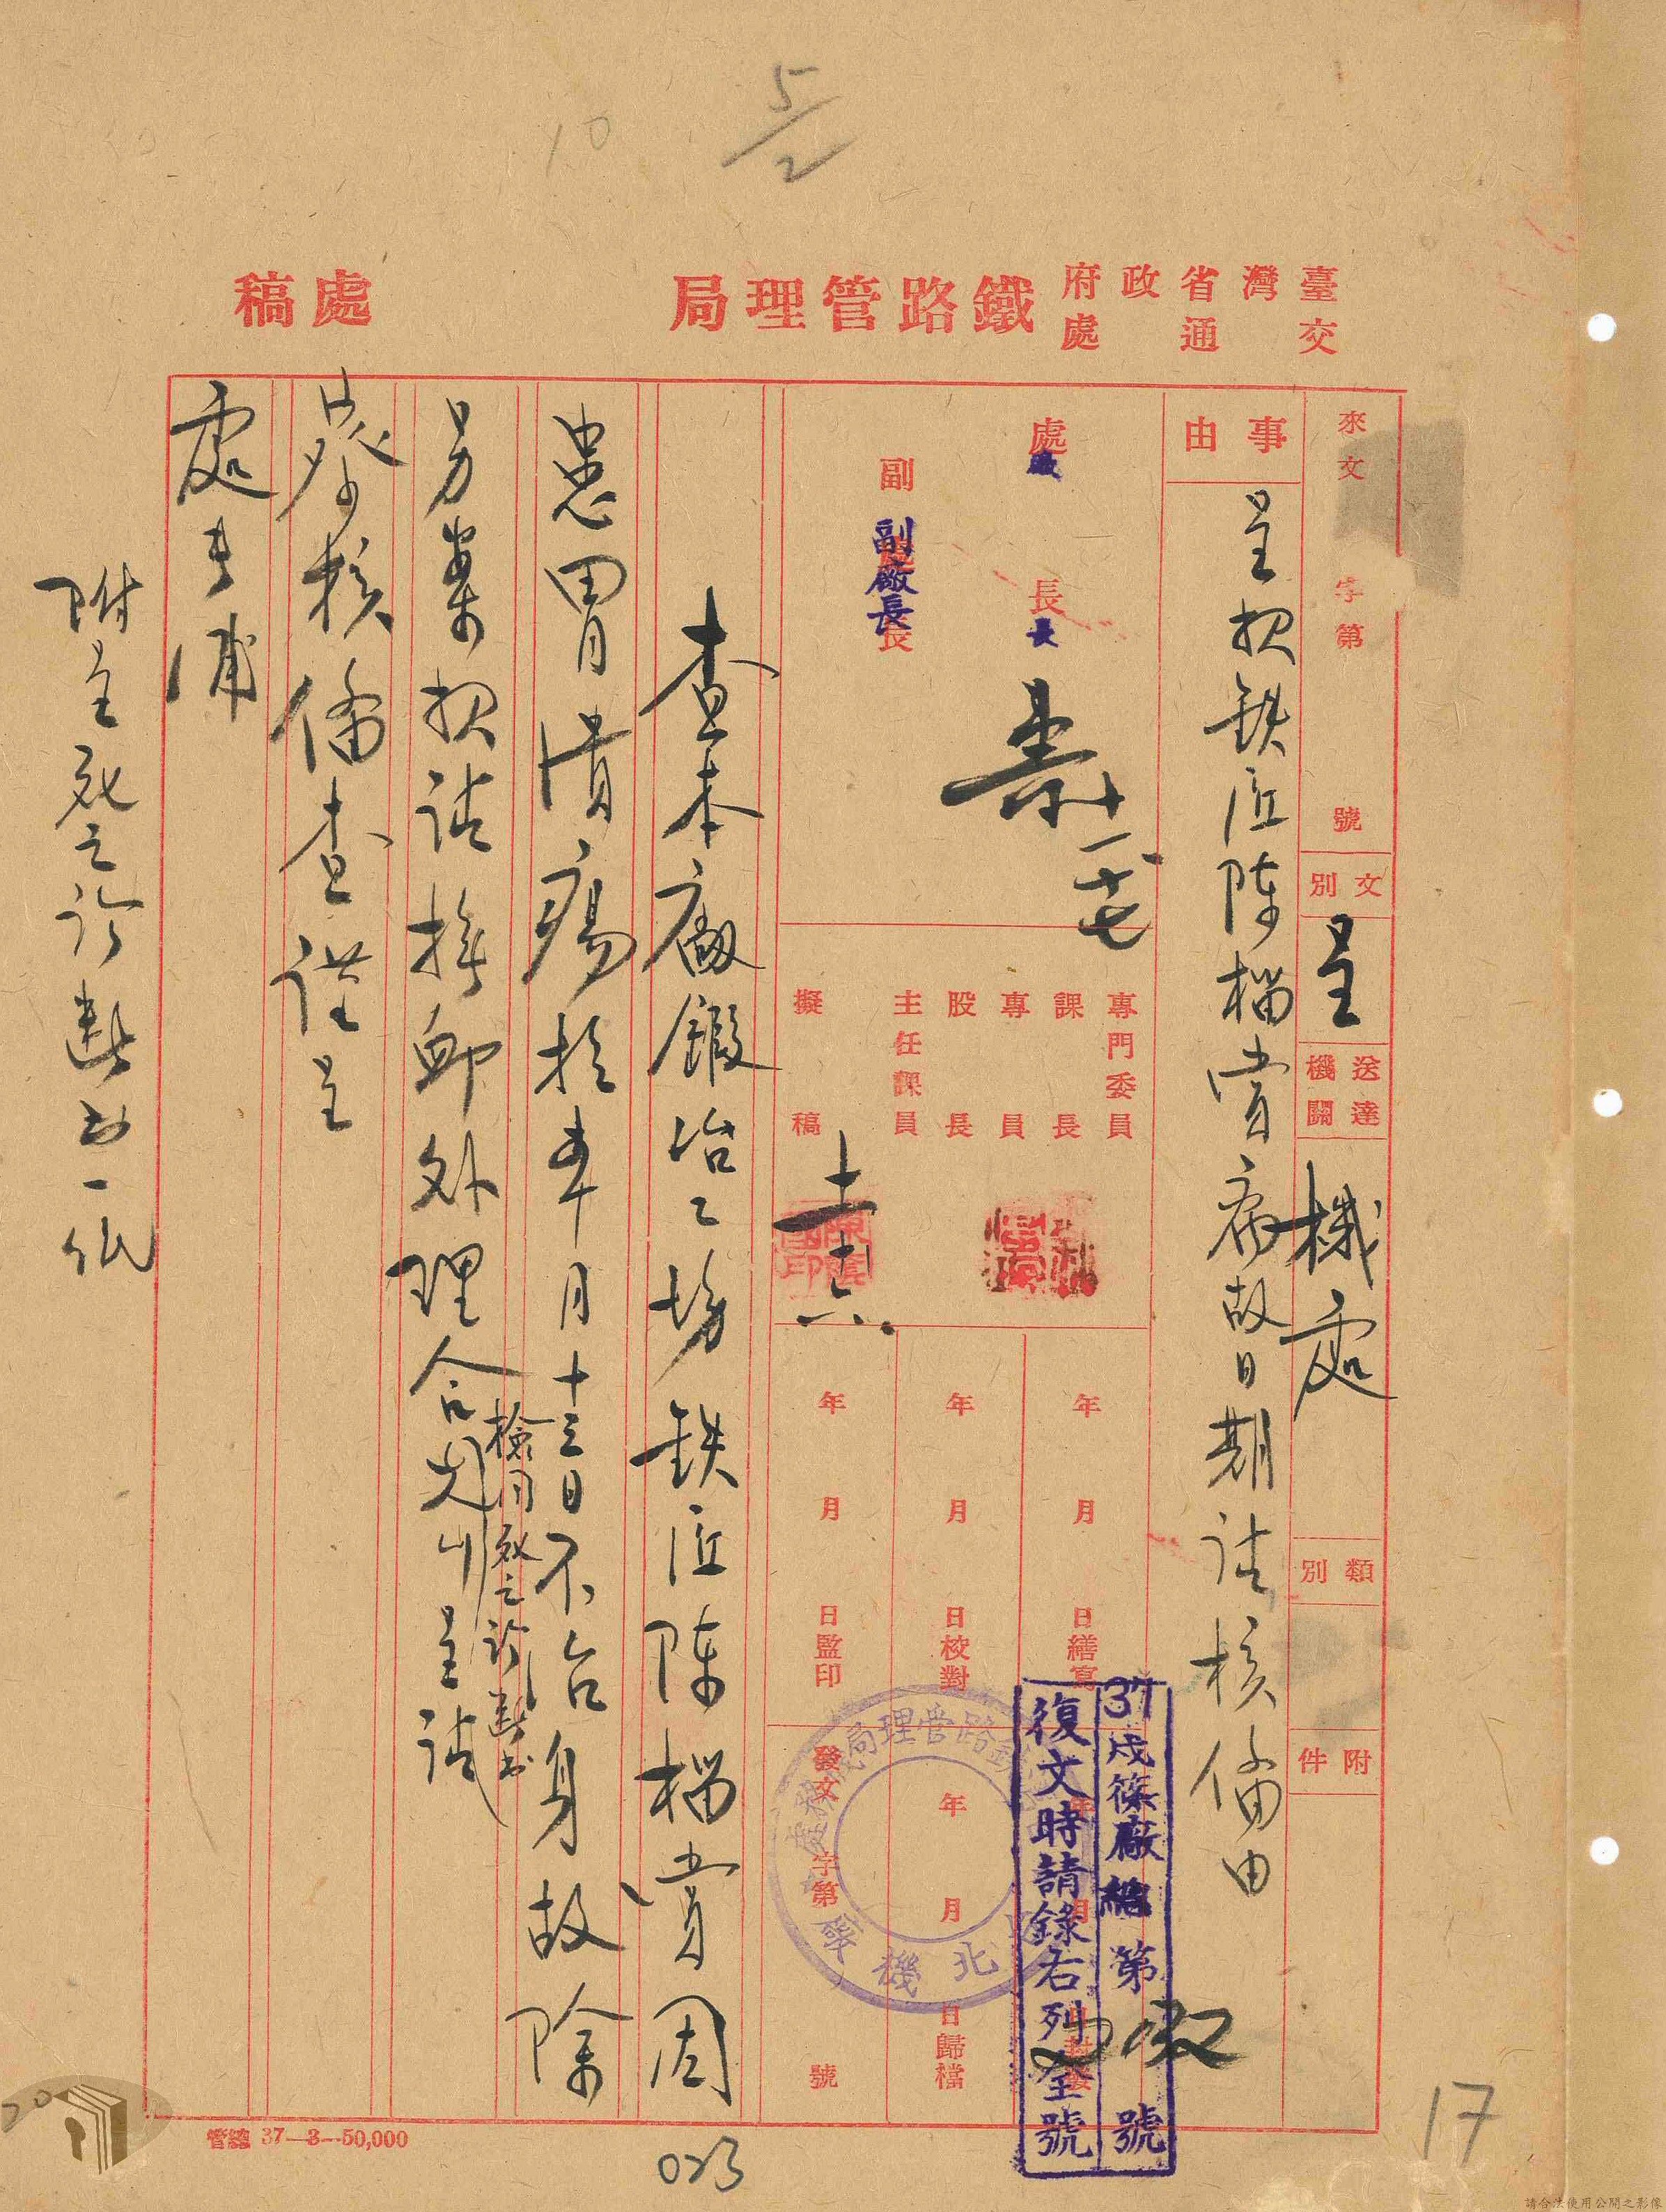 5/2
10
臺灣省政府交通處
鐵路管理局
處稿
來文 字第 號
文別
呈
送達機關
機處
類別
附件
事由
呈報鉄匠陳榴賞病故日期請核備由
處長
廠長
副處長
副廠長
壽 十一 十七
專門委員
課長
專員
股長
主任課員
擬稿
十一 十六
年 月 日繕寫
年 月 日校對
年 月 日監印
年 月 日封發
年 月 日歸檔
發文 字第 號
37戌篠廠總 第 號
復文時請錄右列全號
鐵路管理局
台北機廠
查本廠鍛冶工場鉄匠陳榴賞因
患胃潰瘍於本年月十三日不治身故除
另案報請撫卹外理合
檢同死亡診斷書
呈請
察核備查謹呈
處長 浦
附呈死亡診斷書一紙
管總 37—3—50,000
023
17
20
請合法使用公開之影像